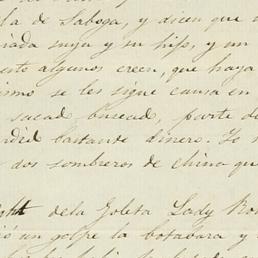 la de Saboga, y dicen que
iada suya y su hijo, y un
esto algunos creen, que haya
ismo se les sigue causa en
sacad buceado, parte d
adrid bastante dinero. Yo
dos sombreros de china qu
de la Goleta Lady Ro
ió un golpe la botabara y